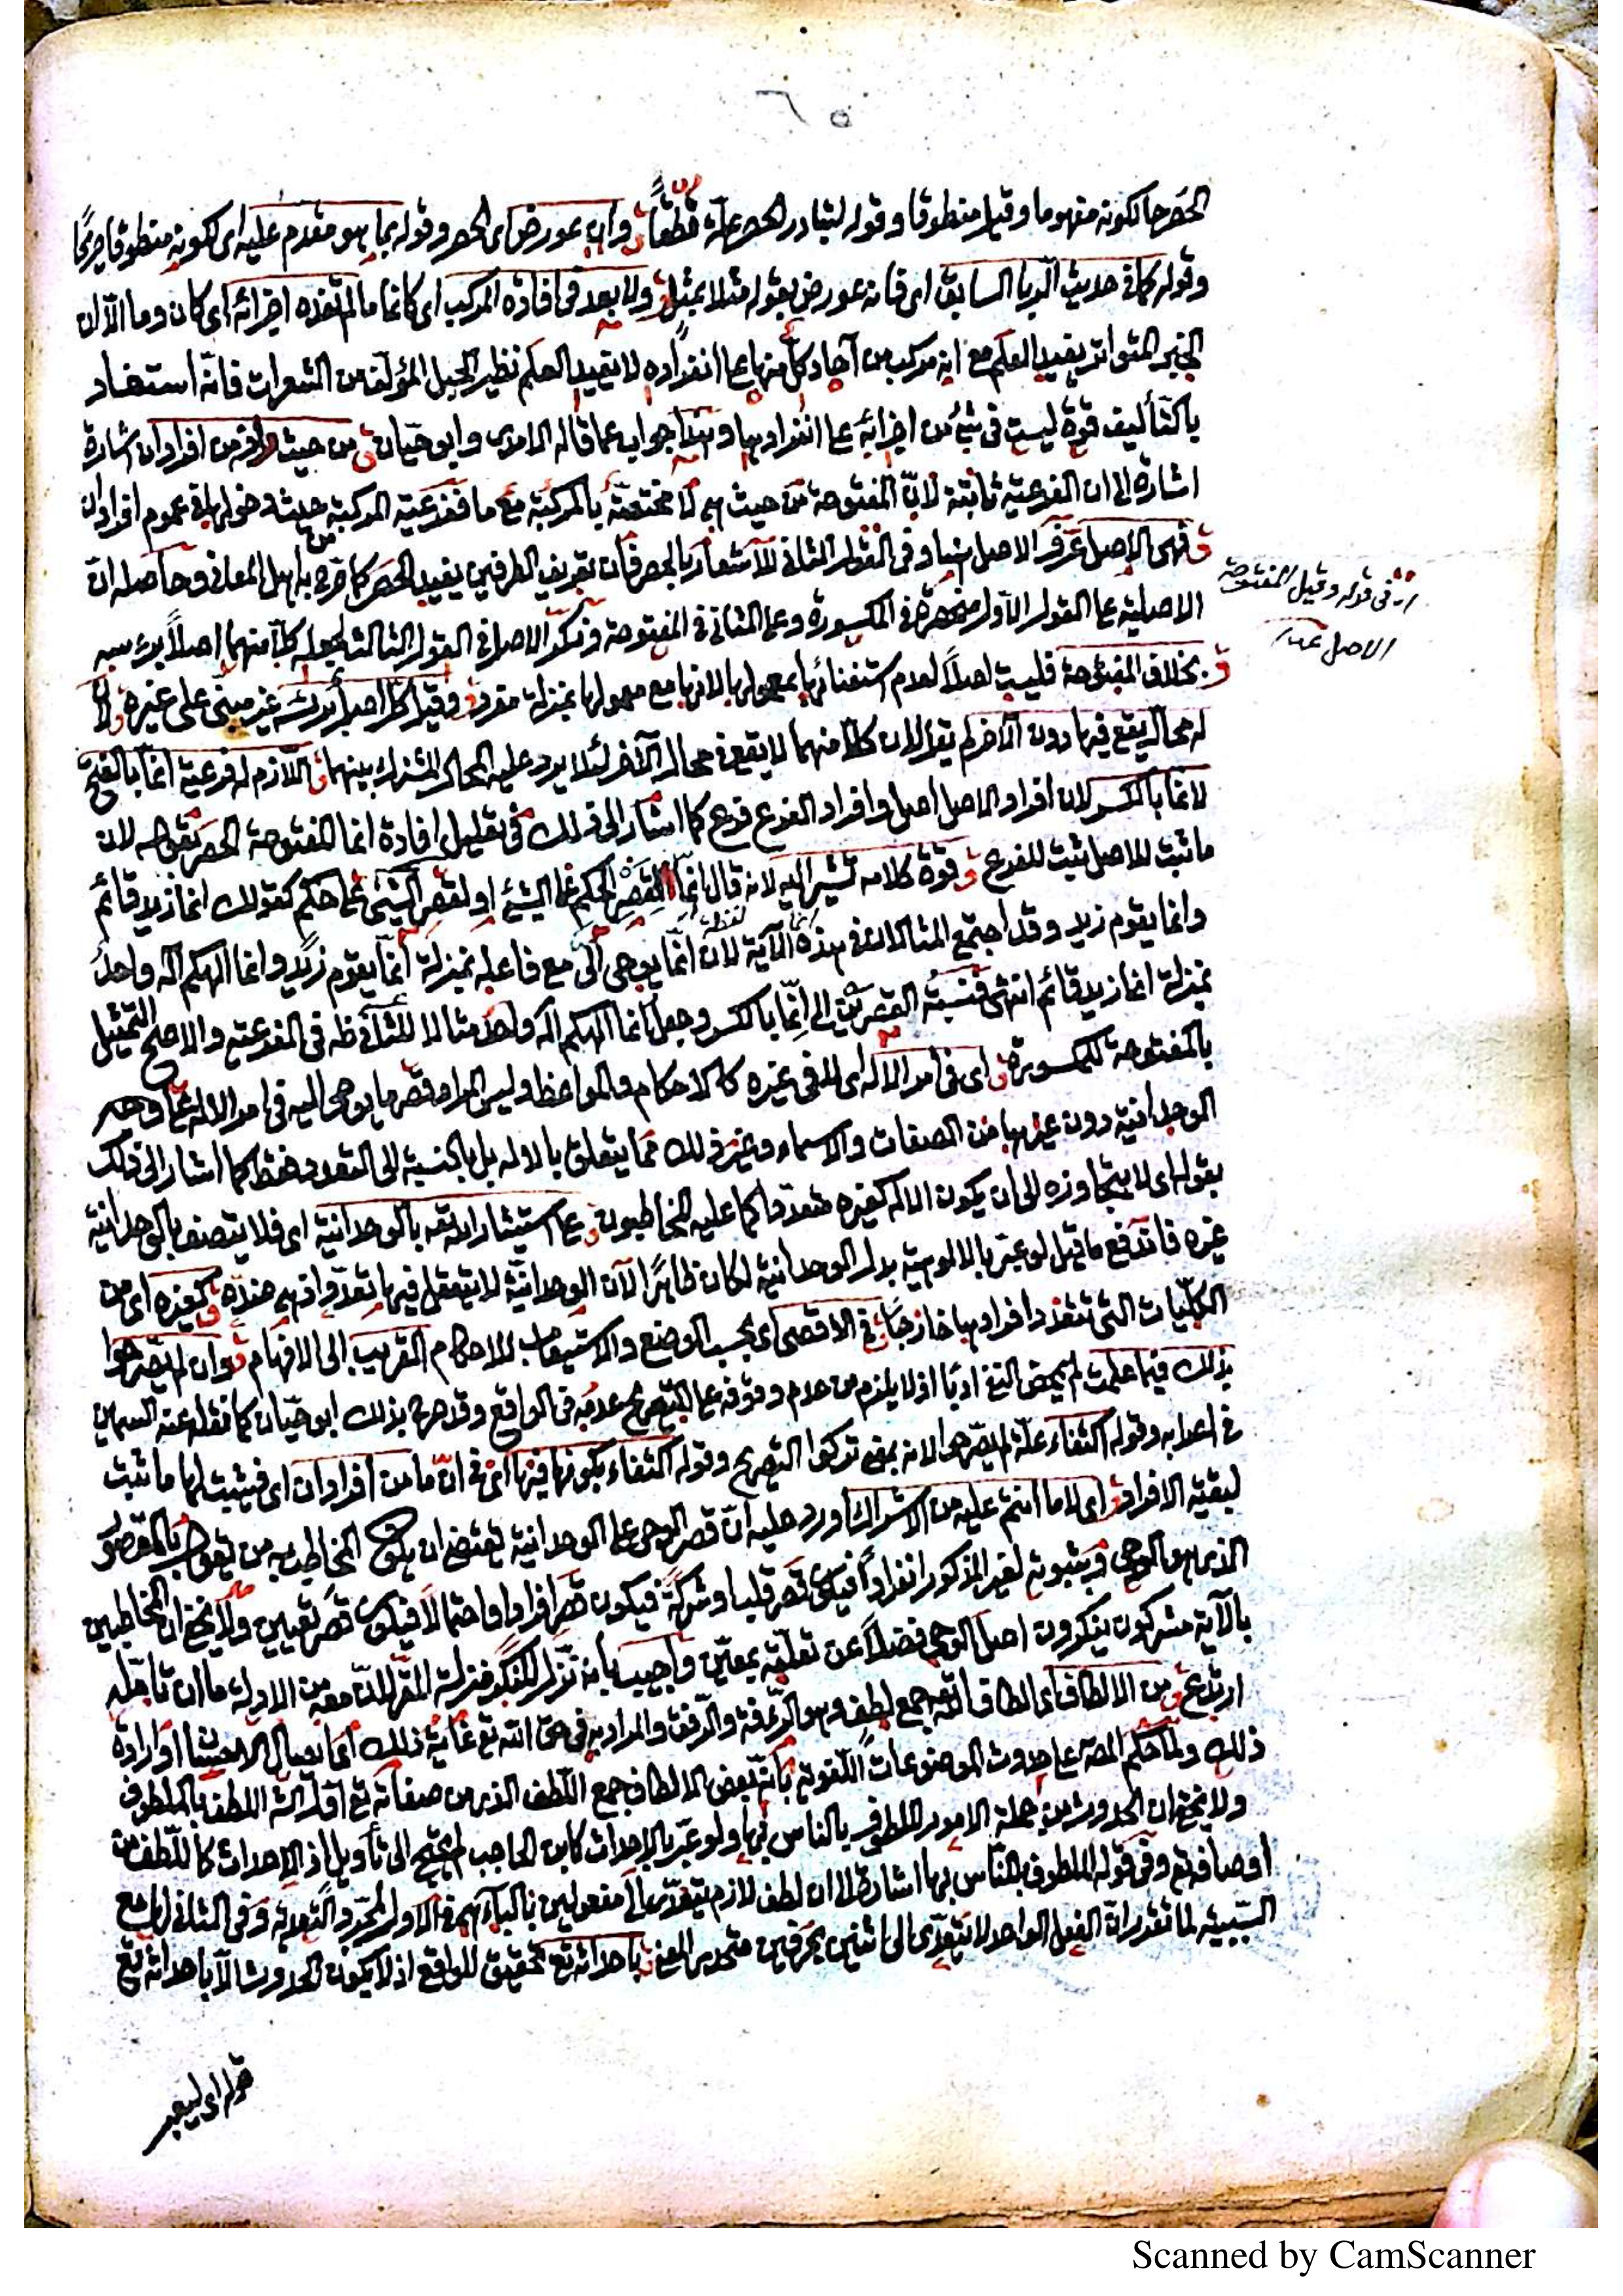 ٦٥
الحصر حال كونه مفهوما وقيل منطوقا وقوله لتبادر الحصر علة قطعاً ق وان عورض اى الحصر وقوله بما هو مقدم عليه اى لكونه منطوقا صريحا
وقوله كما فى حديث الربا السابق اى فانه عورض بقوله مثلا بمثل ق ولا بعد فى افادة المركب اى كانما ما لم تفده اجزائه اى كان وما الا ان
الخبر المتواتر يفيد العلم مع انه مركب من آحاد كل منها على انفراده لا يفيد العلم نظير الحبل المؤلف من الشعرات فانه استفاد
بالتأليف قوة ليست فى شئ من اجزائه على انفرادها وهذا جواب عما قاله الامدى وابو حيان ق من حيث من افراد ان اشارة
اشارة الى ان الفرعية ثابتة لان المفتوحة من حيث هى لا مختصة بالمركبة مع ما ففرعية المركبة من حيث دخولها فى عموم افراد ان
ق فهى الاصل عرف الاصل هنا وفى القول الثانى للاشعار بالحصر فان تعريف الطرفين يفيد الحصر كما صرح به اهل المعانى وحاصله ان
الاصلية على القول الاول منحصرة فى المكسورة وعلى الثانى فى المفتوحة ونكر الاصل فى القول الثالث لجعله كلا منهما اصلا برأسه
ق بخلاف المفتوحة فليست اصلا لعدم استغنائها بمعموليها لانها مع معموليها بمنزلة مفرد ق وقيل كل اصل برأسه غير مبنى على غيره لان
له محال يقع فيها دون الآخر لم يقل لان كلا منهما لا يقع فى محال الآخر لئلا يرد عليه المحال المشترك بينهما ق اللازم له فرعية انما بالفتح
لانما بالكسر لان افراد الاصل اصل وافراد الفرع فرع كما اشار الى ذلك فى تعليل افادة انما المفتوحة الحصر بقوله لان
ما ثبت للاصل يثبت للفرع ق وقوة كلامه تشير اليه لانه قال انما لقصر الحكم على الشئ او لقصر الشئ على حكم كقولك انما زيد قائم
وانما يقوم زيد وقد اجتمع المثالان فى هذه الآية لان انما يوحى الى مع فاعله بمنزلة انما يقوم زيد وانما الهكم اله واحد
بمنزلة انما زيد قائم انتهى فنسبة القصرين الى انما بالكسر وجعل انما الهكم اله واحد مثالا للثانى فى الفرعية والاصح التمثيل
بالمفتوحة للمكسورة ق اى فى امر الاله اى لا فى غيره كالاحكام والمواعظ وليس المراد قصر ما يوحى اليه فى امر الاله على وصف
الوحدانية دون غيرها من الصفات والاسماء وغير ذلك مما يتعلق بالاله بل بالنسبة الى التعدد فقط كما اشار الى ذلك
بقوله اى لا يتجاوزه الى ان يكون الاله كغيره متعددا كما عليه المخاطبون ق على استيثار الله به بالوحدانية اى فلا يتصف بالوحدانية
غيره فاندفع ما قيل لو عبر بالالوهية بدل الوحدانية لكان ظاهرا لان الوحدانية لا يتعقل فيها تعدد اذ هى ضده ق كغيره اى من
الكليات التى تتعدد افرادها خارجا ق فى الاقصى اى بحسب الوضع والاستيعاب للاحكام القريب الى الافهام ق وان لم يصرحوا
بذلك فيما علمت لم يحض النفى ادبا اذ لا يلزم من عدم وقوفه على التصريح عدمه فى الواقع وقد صرح بذلك ابو حيان كما نقله عنه السمين
فى اعرابه وقوله اكتفاء علة لم يصرحوا لانه بمعنى تركوا التصريح وقوله اكتفاء بكونها فيها اى فى ان ما من افراد ان اى فيثبت لها ما ثبت
لبقية الافراد ق اى لا ما انتم عليه من الاشراك اورد عليه ان قصر الوحى على الوحدانية يقتضى ان يكون المخاطب به من يقول بالمقصور
الذى هو الوحى وثبوته لغير المذكور انفرادا فيكون قصر قلب او شركة فيكون قصر افراد او احتمالا فيكون قصر تعيين ولا يخفى ان المخاطبين
بالآية مشركون ينكرون اصل الوحى فضلا عن تعلقه بمعين واجيب بانه تنزل المنكر منزلة المقر لان معه من الادلة ما ان تأمله
ارتدع ق من الالطاف اى الطاف الله جمع لطف وهو الرأفة والرفق والمراد به فى حق الله تع غاية ذلك اى ايصال الاحسان او ارادة
ذلك ولما حكم المص على حدوث الموضوعات اللغوية بانه بعض الالطاف جمع اللطف الذى من صفاته تع اللطف بالملطوف
ولا يخفى ان الحدوث من جملة الامور الملطوف بالناس بها ولو عبر بالاحداث كابن الحاجب لم يحتج الى تأويل اذ الاحداث كاللطف من
اوصافه تع وفى قوله الملطوف بالناس بها اشارة الى ان لطف لازم يتعدى الى مفعولين بالباء فهى فى الاول لمجرد التعدية وفى الثانى لها مع
السببية لما تقرر ان الفعل الواحد لا يتعدى الى اثنين بحرفين متحدى المعنى ق باحداثه تع تحقيق للواقع اذ لا يكون الحدوث الا باحداثه تع
اى فى قوله وقيل المفتوحة
الاصل
قوله اى ليعبر
Scanned by CamScanner